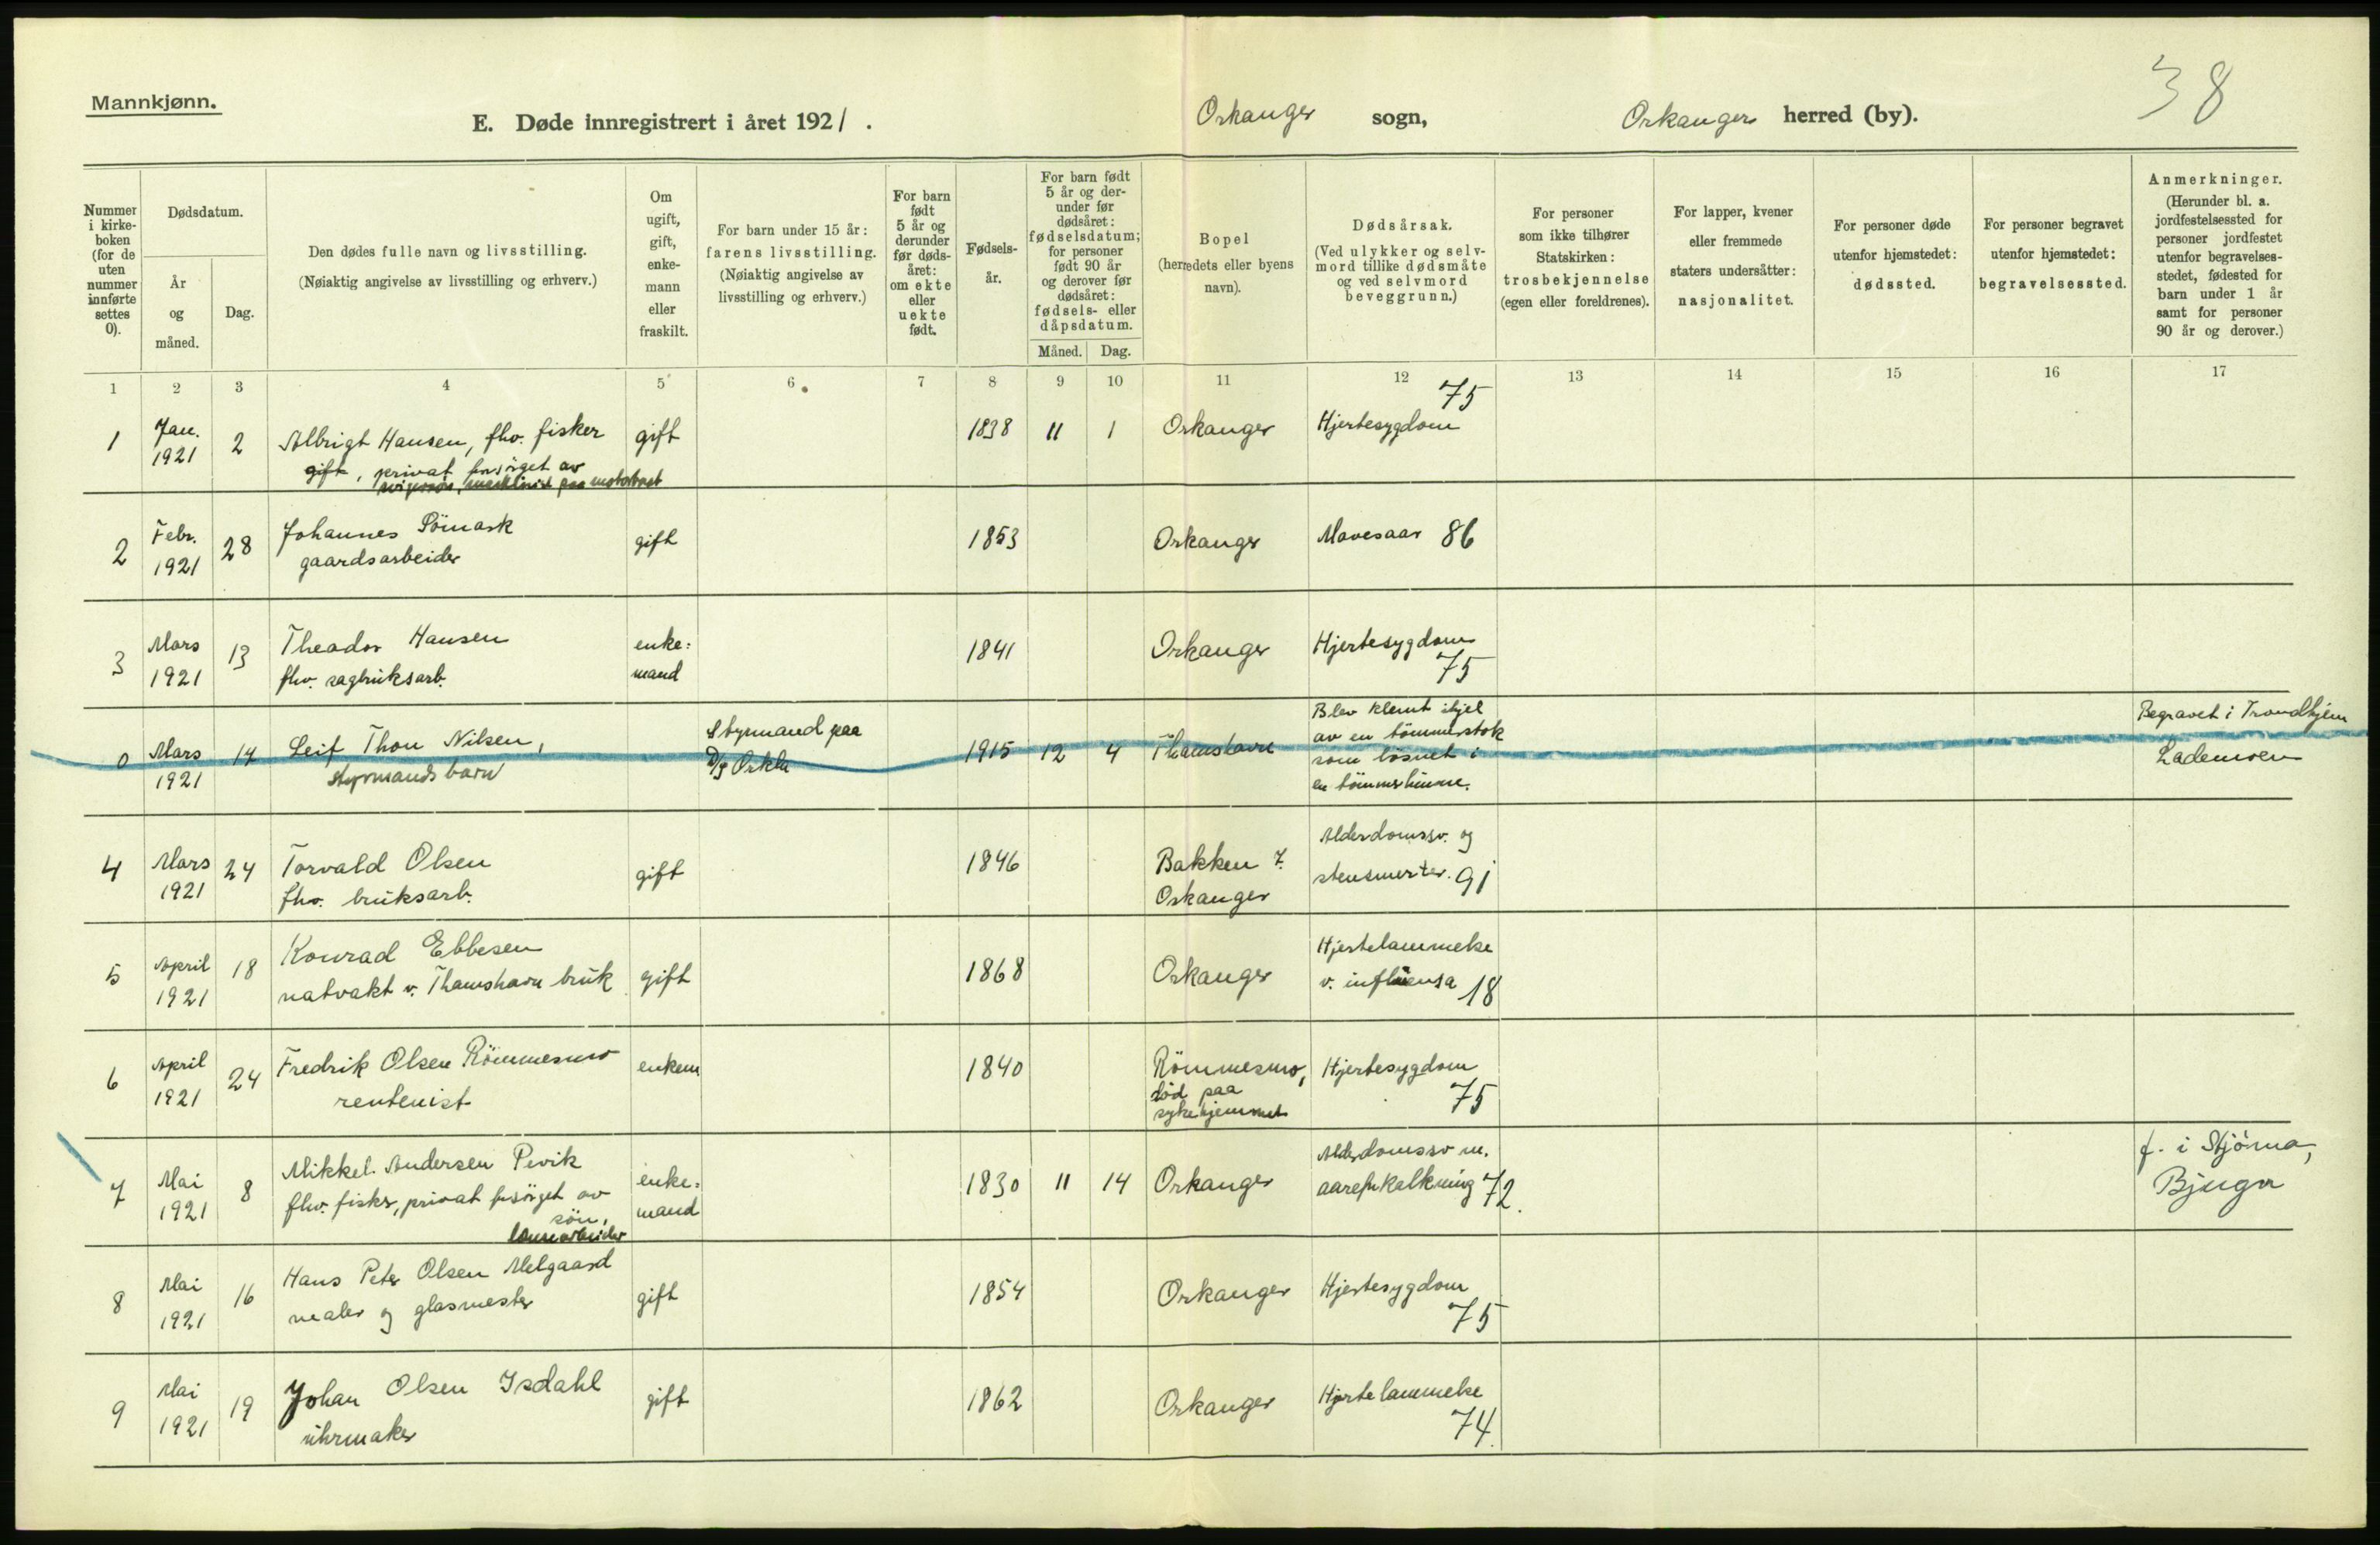 Mannkjønn.
E. Døde innregistrert i året 1921.
Orkanger sogn,
Orkanger herred (by).
38
Nummer i kirke-boken (for de uten nummer innførte settes 0).
Dødsdatum.
År og måned.
Dag.
Den dødes fulle navn og livsstilling.
(Nøiaktig angivelse av livsstilling og erhverv.)
Om ugift, gift, enke-mann eller fraskilt.
For barn under 15 år:
farens livsstilling.
(Nøiaktig angivelse av livsstilling og erhverv.)
For barn født 5 år og derunder før døds-året: om ekte eller uekte født.
Fødsels-år.
For barn født 5 år og der-under før dødsåret: fødselsdatum; for personer født 90 år og derover før dødsåret: fødsels- eller dåpsdatum.
Måned.
Dag.
Bopel
(herredets eller byens navn).
Dødsårsak.
(Ved ulykker og selv-mord tillike dødsmåte og ved selvmord beveggrunn.)
For personer som ikke tilhører Statskirken: trosbekjennelse (egen eller foreldrenes).
For lapper, kvener eller fremmede staters undersåtter: nasjonalitet.
For personer døde utenfor hjemstedet: dødssted.
For personer begravet utenfor hjemstedet: begravelsessted.
Anmerkninger.
(Herunder bl. a. jordfestelsessted for personer jordfestet utenfor begravelses-stedet, fødested for barn under 1 år samt for personer 90 år og derover.)
1 2 3 4 5 6 7 8 9 10 11 12 13 14 15 16 17
1 Jan. 1921 2 Albrigt Hansen, fhv. fisker gift 1838 11 1 Orkanger Hjertesygdom 75
gift, privat forsörget av
maskinist paa motorbaat
2 Febr. 1921 28 Johannes Sömark gift 1853 Orkanger Mavesaar 86
gaardsarbeider
3 Mars 1921 13 Theodor Hansen enke=mand 1841 Orkanger Hjertesygdom 75
fhv. sagbruksarb.
0 Mars 1921 14 Leif Thon Nilsen, Styrmand paa D/S Orkla 1915 12 4 Thamshavn Blev klemt ihjel av en tömmerstok som lösnet i en
Begravet i Trondhjem Lademoen
styrmands barn
4 Mars 1921 24 Torvald Olsen gift 1846 Bakken Orkanger Alderdomssv. og stensmerter. 91
fhv. bruksarb.
5 April 1921 18 Konrad Ebbesen gift 1868 Orkanger Hjertelammelse v. influensa 18
natvakt v. Thamshavn bruk
6 April 1921 24 Fredrik Olsen Römmesmo enkem 1840 Römmesmo, död paa sykehjemmet Hjertesygdom 75
rentenist
7 Mai 1921 8 Mikkel Andersen Pevik enke=mand 1830 11 14 Orkanger Alderdomssv m. aareforkalkning 72.
f. i Stjörna, Bjugn
fhv. fisker, privat forsörget av
sön,
8 Mai 1921 16 Hans Peter Olsen Melgaard gift 1854 Orkanger Hjertesygdom 75
maler og glasmester
9 Mai 1921 19 Johan Olsen Isdahl gift 1862 Orkanger Hjertelammelse 74.
uhrmaker